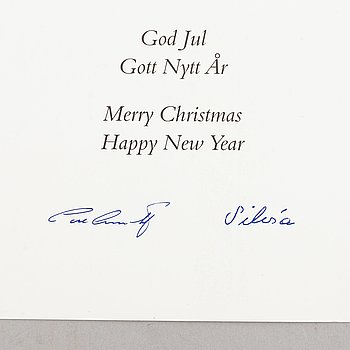 God Jul
Gott Nytt År
Merry Christmas
Happy New Year
Silvia